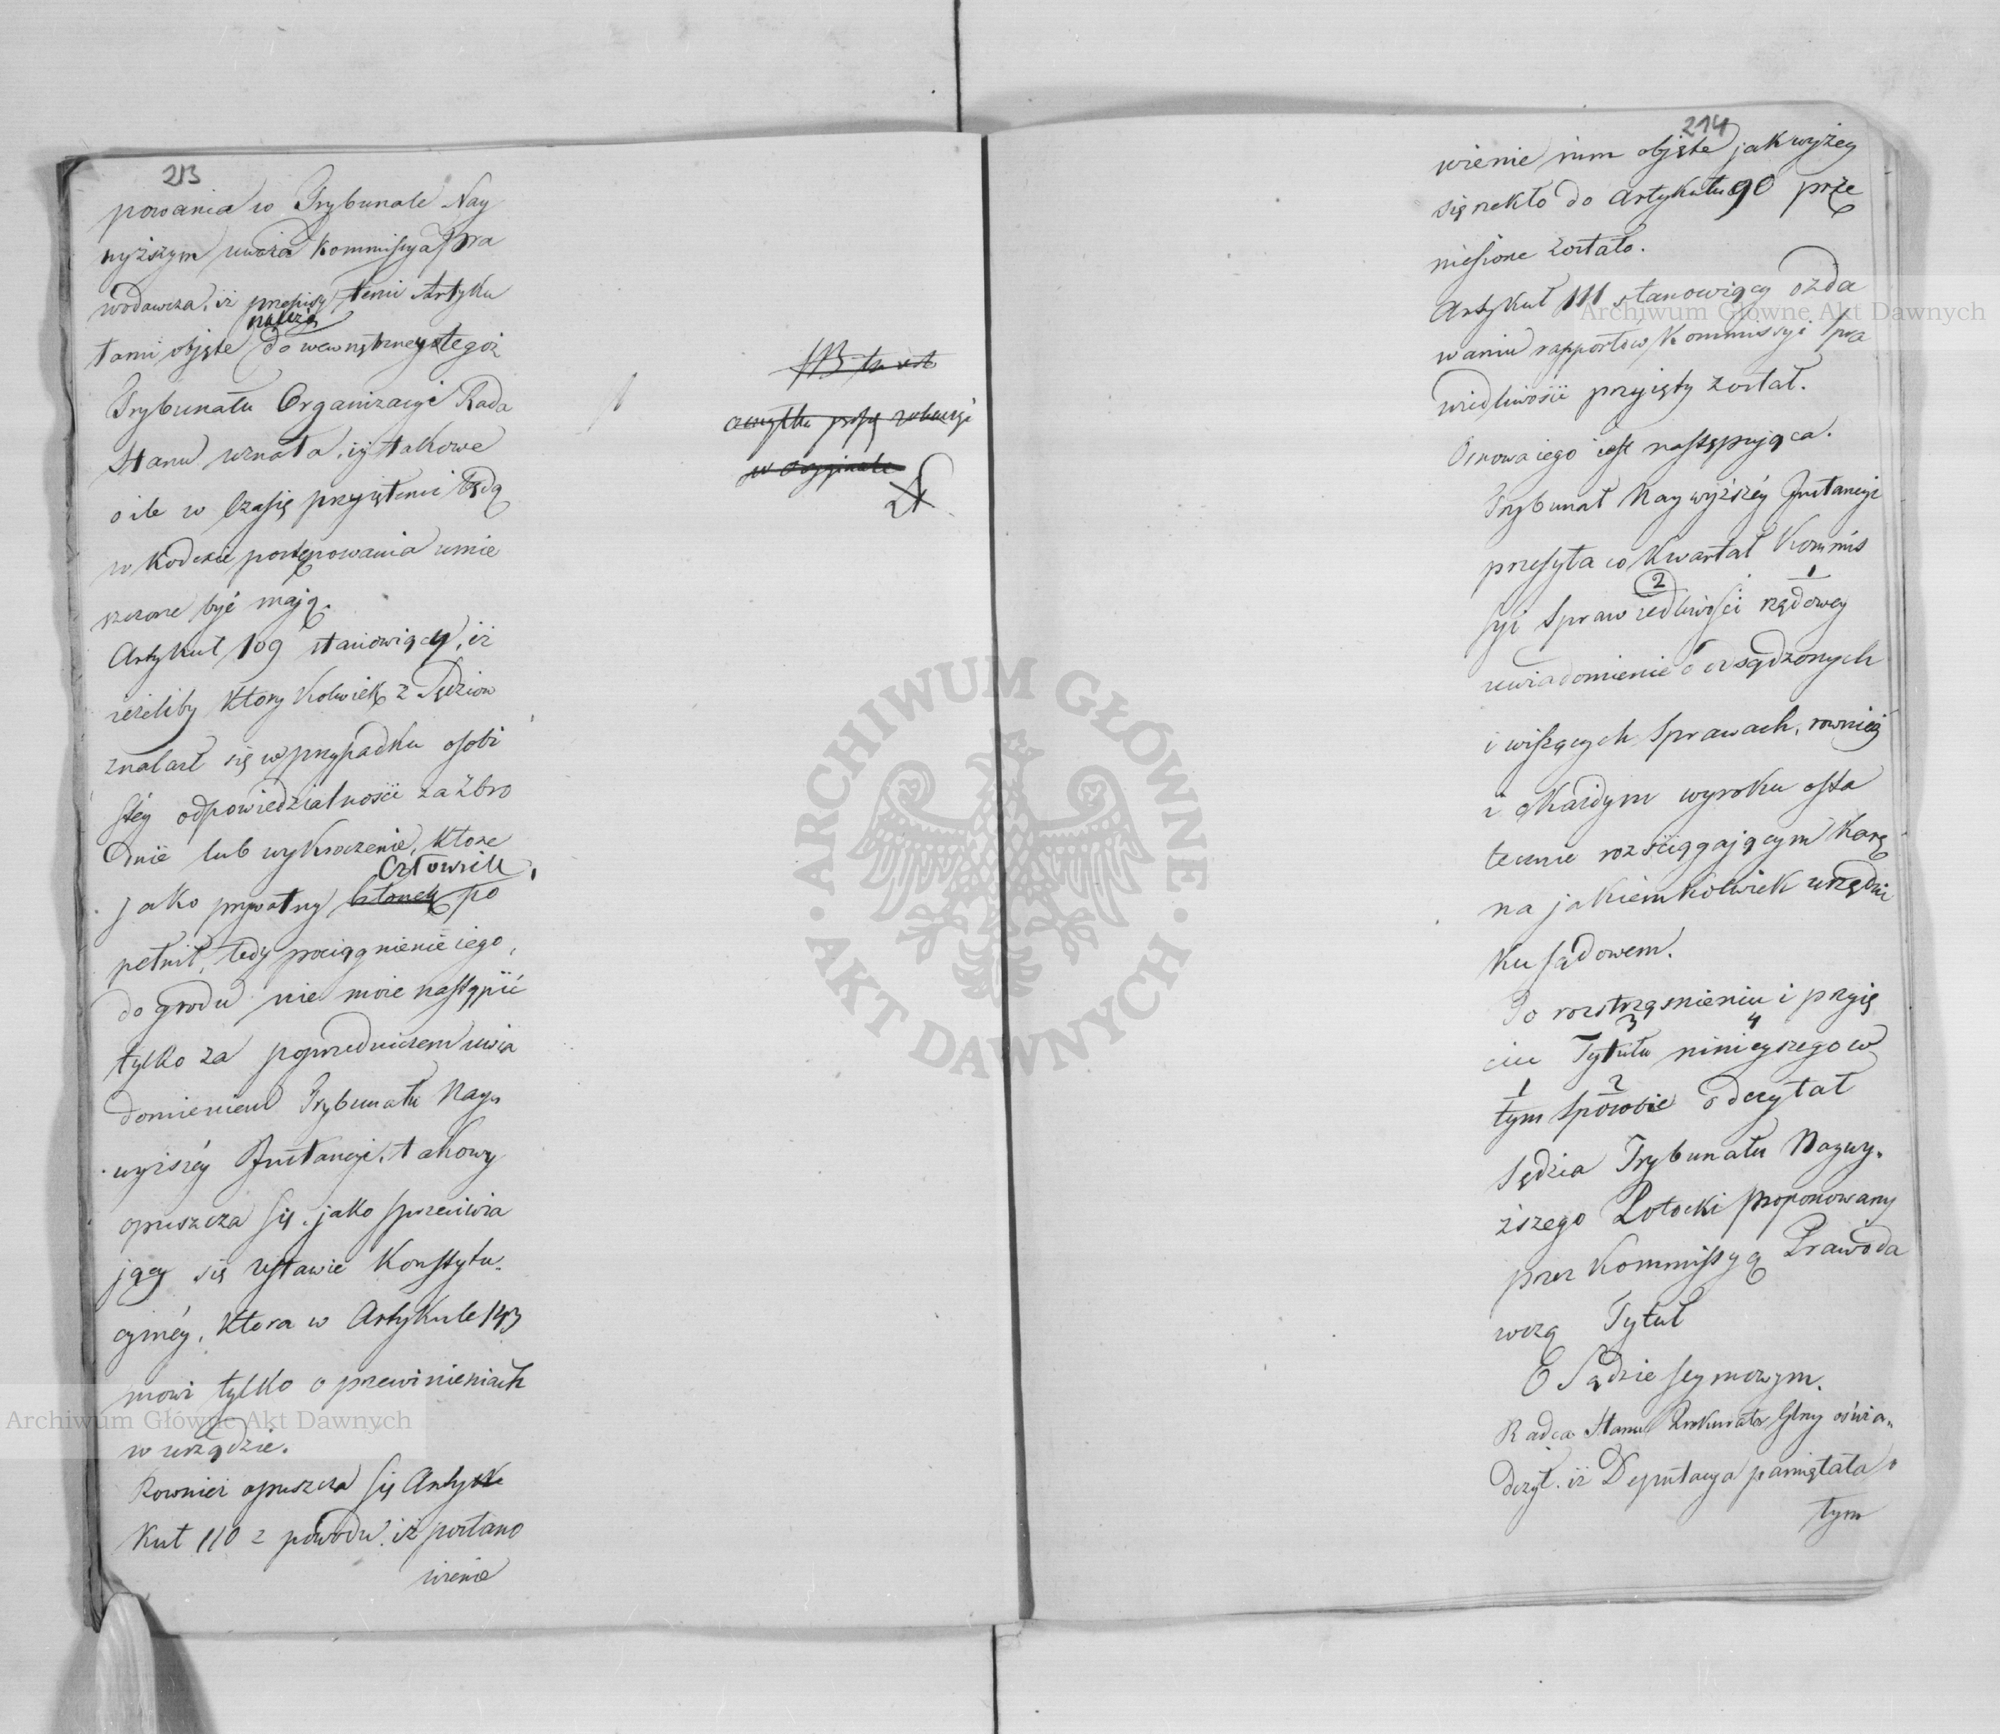 213
powania w Trybunale Nay
wyższym uważa Kommissya Pra
wodawcza, iż przepisy temi Artyku
należą
łami objęte do wewnętrzney tegoż
Trybunału Organizacyi Rada
Stanu uznała, iż takowe
o ile w czasie przyięteni będą
w Kodexie postępowania umie
szczone być mają.
Artykuł 109 stanowiący, iż
ieżeliby który kolwiek z Sędziow
znalazł się w przypadku osobi
stéy odpowiedzialności za zbro
dnie lub wykroczenie, ktore
Człowiek
jako prywatny człowiek po
pełnił, tedy pociągnienie iego,
do grodu nie może nastąpić
tylko za poprzedniczem uwia
domieniem Trybunału Nay„
wyższéy Instancyi, takowy
opuszcza się, jako sprzeciwia
jący się ustawie Konstytu„
cyinéy, która w Artykule 143
mowi tylko o przewinieniach
w urzędzie.
Rownież opuszcza się Arty
kuł 110 z powodu, iż postano
wienie
113 to
w oryginale
214
wienie nim objęte jak wyżey
się rzekło do artykułu 90 prze
niesione zostało.
Artykuł 111 stanowiący o zda
waniu rapportów Kommissyi Spra
wiedliwości przyięty został.
Osnowa iego iest następująca.
Trybunał Naywyższéy Instancyi
przesyła co Kwartał Kommis
2 1
syi Sprawiedliwości rządowey
uwiadomienie o osądzonych
i wiszących Sprawach, rownież
i o każdym wyroku osta
tecznie rozściągającym karę
na jakiemkolwiek urzędni
ku sądowem.
Po roztrząśnieniu i przyię
3 4
ciu Tytułu ninieyszego w
1 2
tym sposobie odczytał
Sędzia Trybunału Naywy„
ższego Potocki proponowany
przez Kommissyą Prawoda
wczą Tytuł
O Sądzie Seymowym.
Radca Stanu Prokurator Glny oświa„
dczył, iż Deputacya pamiętała o
tym
Archiwum Główne Akt Dawnych
Archiwum Główne Akt Dawnych
ARCHIWUM GŁÓWNE
AKT DAWNYCH